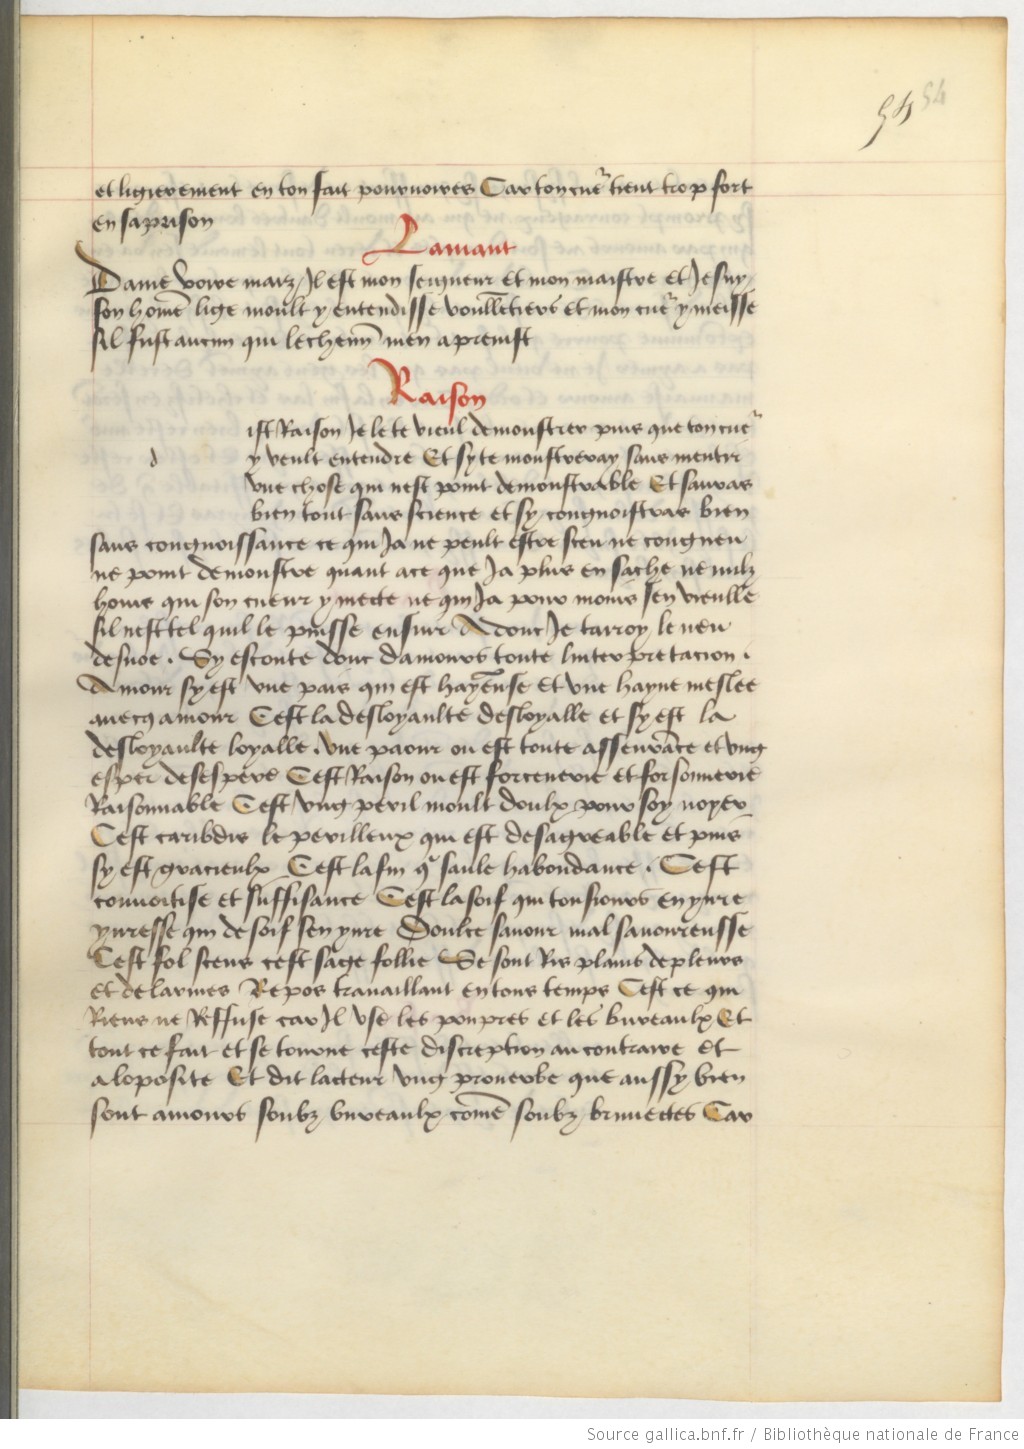 54 54
et ligierement en ton fait pourvoires Car ton cue᷑ tient trop fort
en sa prison
Lamant
Dame voire maiz Il est mon seigneur et mon maistre et Je suy
son home᷑ lige moult y entendisse voulle᷑tiers et mon cue᷑ y meisse
sil fust aucun qui le chemi᷑ men apreinst
Raison
ist Raison Je le te vieul demonstrer puis que ton cue᷑
d y veult entendre Et sy te monstreray sans mentir
vne chose qui nest point demonstrable Et sauras
bien tout sans science et sy congnoistras bien
sans congnoissance ce qui Ja ne peult estre sceu ne congneu
ne point demonstre quant a ce que Ja plus en sache ne nulz
homs qui son cueur y mette ne qui Ja pour moins sen vieulle
sil nest tel quil le puisse ensuir Adonc Je tarroy le neu
desnoe . Sy escoute donc damours toute linterpretacion .
Amour sy est vne paix qui est haye᷑use et vne hayne meslee
auecq amour Cest la desloyaulte desloyalle et sy est la
desloyaulte loyalle . vne paour ou est toute asseura᷑ce et vng
esper desespere Cest Raison ou est forcenerie et forsonnerie
Raisonnable Cest vng peril moult doulx pour soy noyer
Cest caribdis le perilleux qui est desagreable et puis
sy est gracieulx Cest la fin q᷑ saule habondance . Cest
couuoitise et suffisance Cest la soif qui tousiours enyure
yuresse qui de soif sen yure Doulce sauour mal sauoureusse
Cest fol scens cest sage follie Se sont Ris plains de pleurs
et de larmes Repos trauaillant en tous temps Cest ce qui
Riens ne Reffuse car Il vse les pourpres et les bureaulx Et
tout ce fait et se tourne ceste discreption au contraire et
a loposite Et dit lacteur vng prouerbe que aussy bien
sont amours soubz bureaulx come᷑ soubz brunettes Car
Source gallica.bnf.fr / Bibliothèque nationale de France